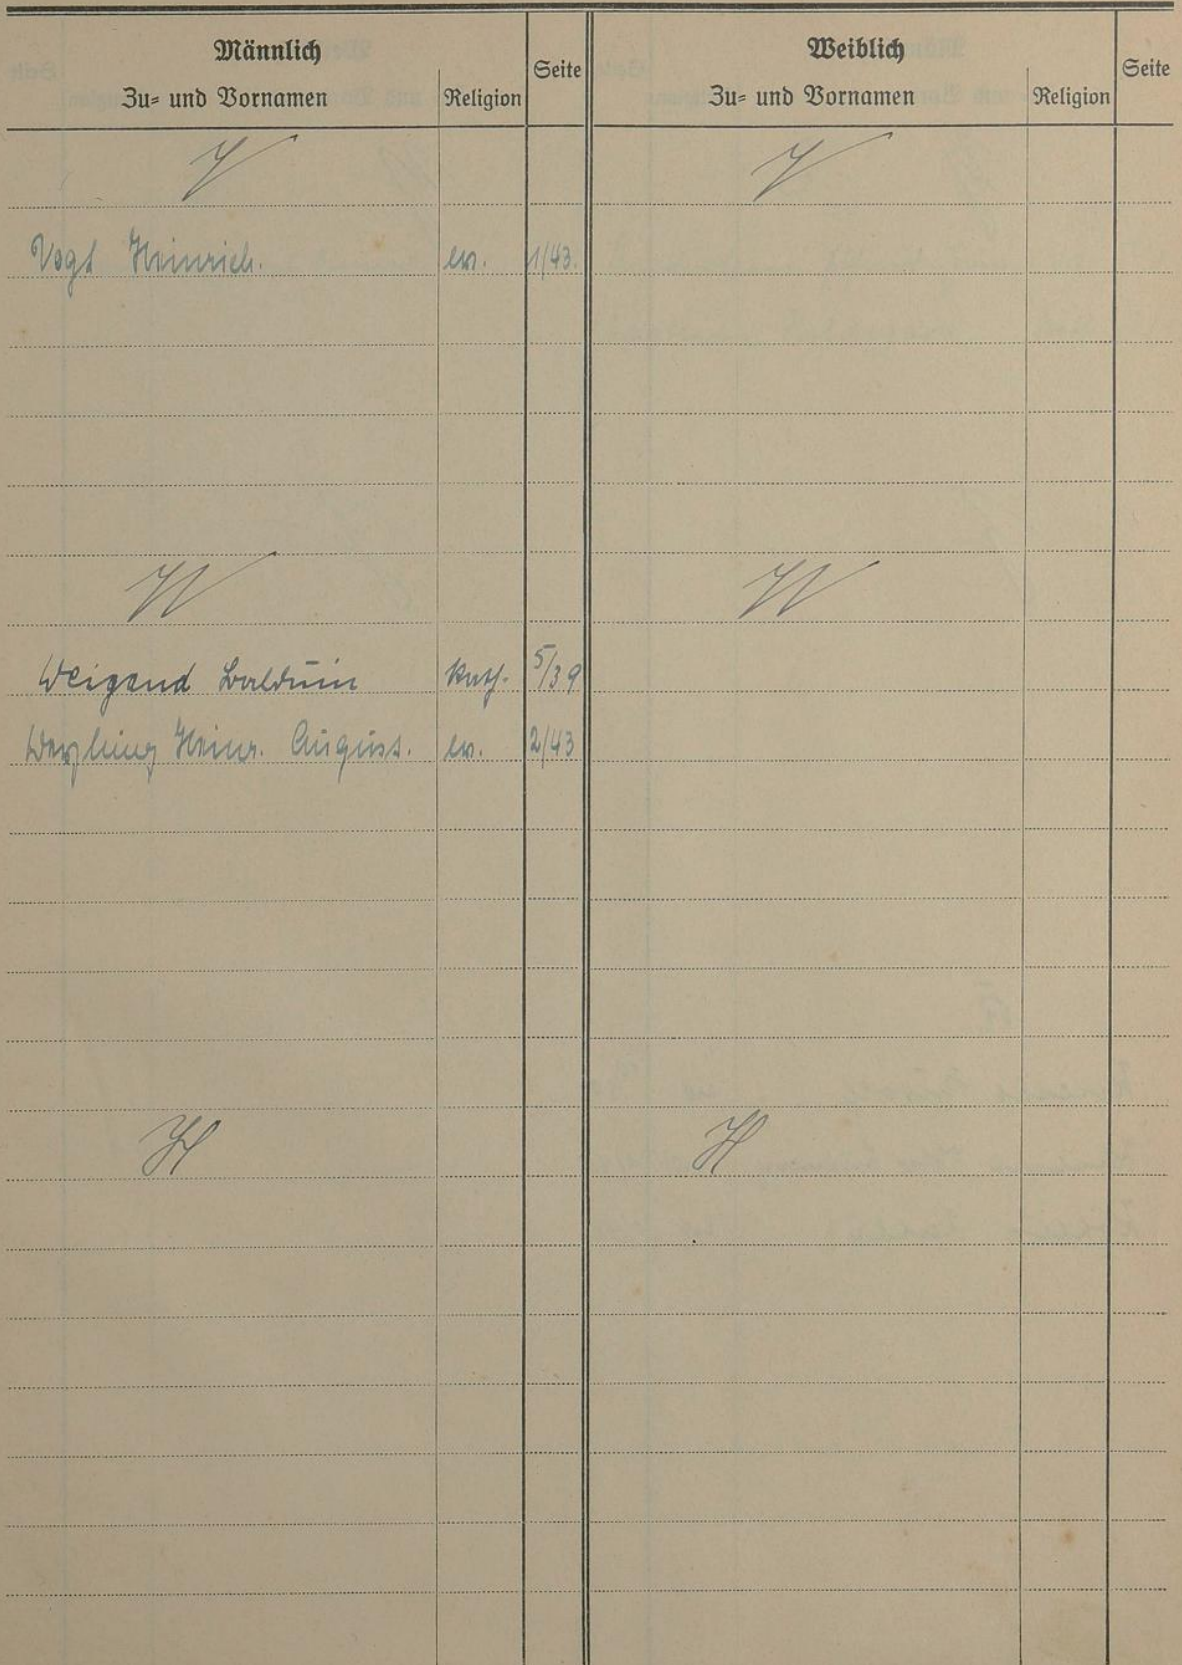 Männlich
Zu- und Vornamen Religion Seite
Weiblich
Zu- und Vornamen Religion Seite
V V
Vogt Heinrich. ev. 1/43.
W W
Weigand Balduin kath. 5/39
Heinr. August. ev. 2/43